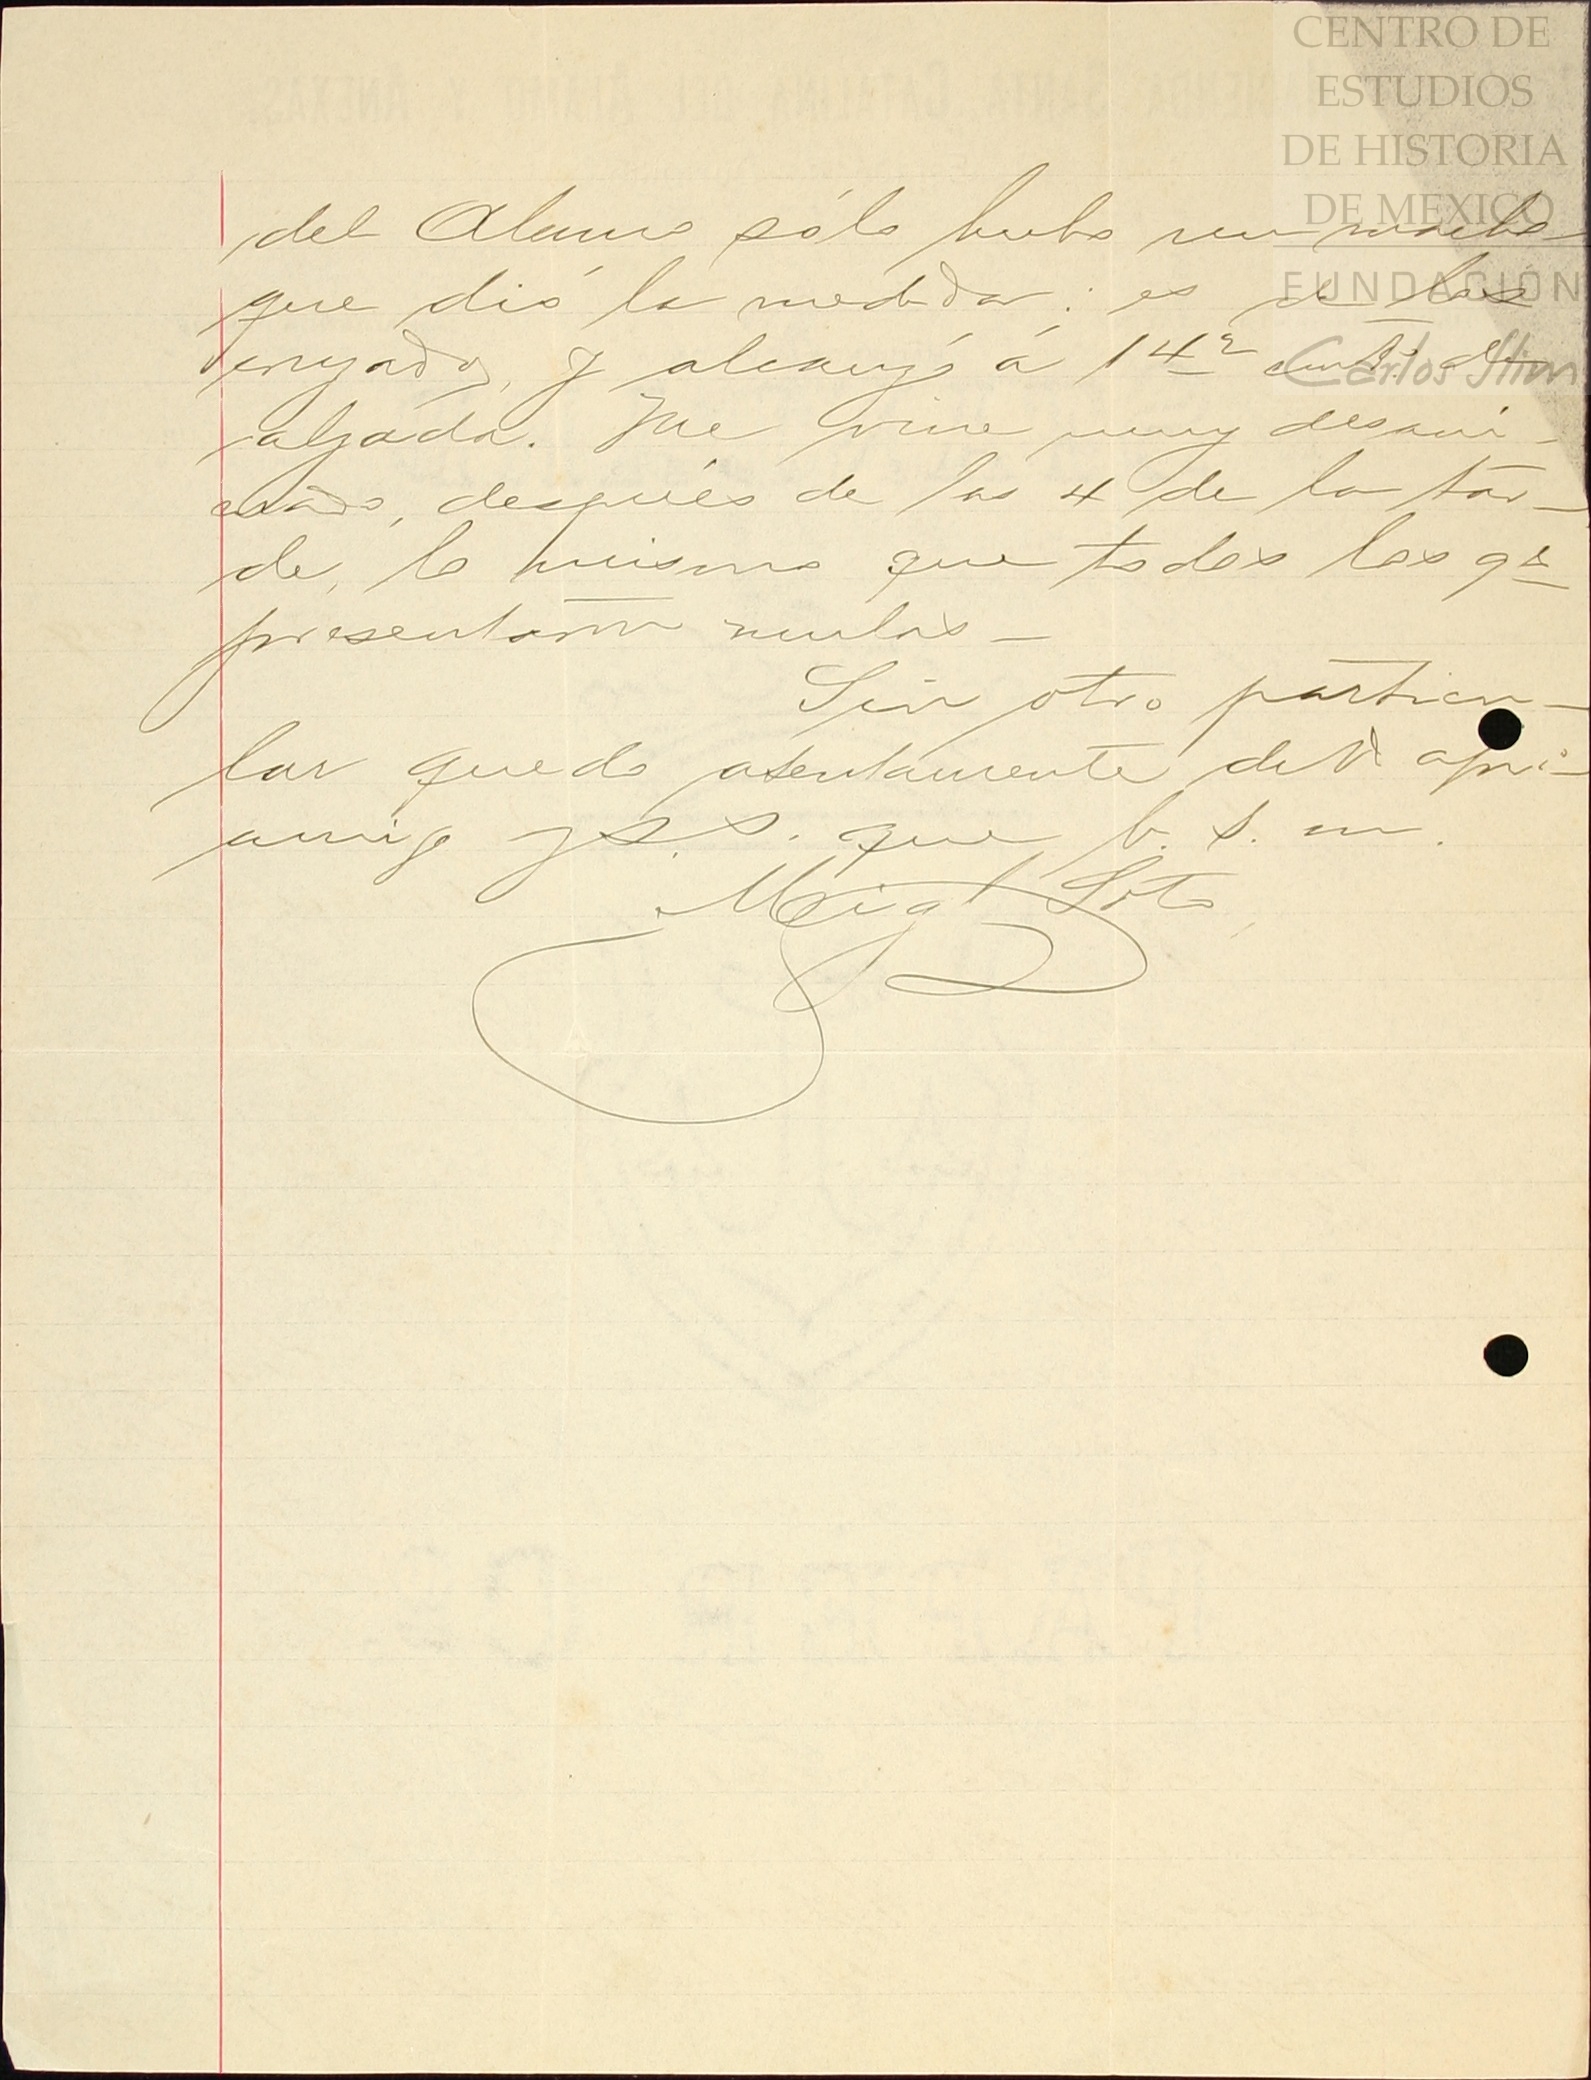 CENTRO DE
ESTUDIOS
DE HISTORIA
DE MEXICO
FUNDACIÓN
Carlos Slim
del Alamo sólo hubo un macho
que dió la medida: es de los
y alcanzó á 142 cent. de
alzada. Me vine muy desani-
mado, después de las 4 de la tar-
de, lo mismo que todos los qe
presentaron mulas—
Sin otro particu-
lar quedo atentamente de V
amigo y S. S. que b. s. m.
Migl Soto